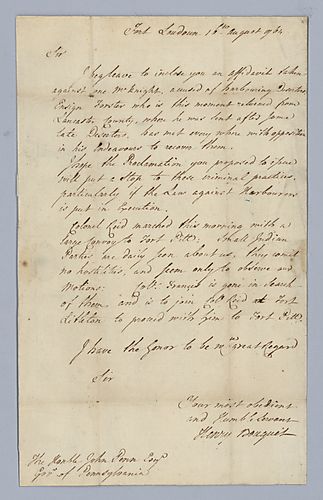 Fort Loudoun 16th August 1764
Sir
I beg leave to inclose you an affidavit taken
against one McKnight, accused of harbouring Deserters
Ensign Forster who is this moment returned from
Lancaster County, where he was sent after some
late Deserters, has met every where with opposition
in his Endeavours to recover them.
I hope the Proclamation you proposed to issue
will put a Stop to these criminal practices,
particularly if the Law against Harbourers
is put in Execution.
Colonel Reid marched this morning with a
large Convoy to Fort Pitt. Small Indian
Parties are daily seen about us. They commit
no hostilities, and seem only to observe our
Motions. Coll: Francis is gone in Search
of them and is to join Coll Reid at Fort
Littleton to proceed with him to Fort Pitt.
I have the honor to be wth great Regard
Sir
Your most obedient
and Humble Servant
Henry Bouquet
The Honble John Penn Esqr
Govr of Pennsylvania